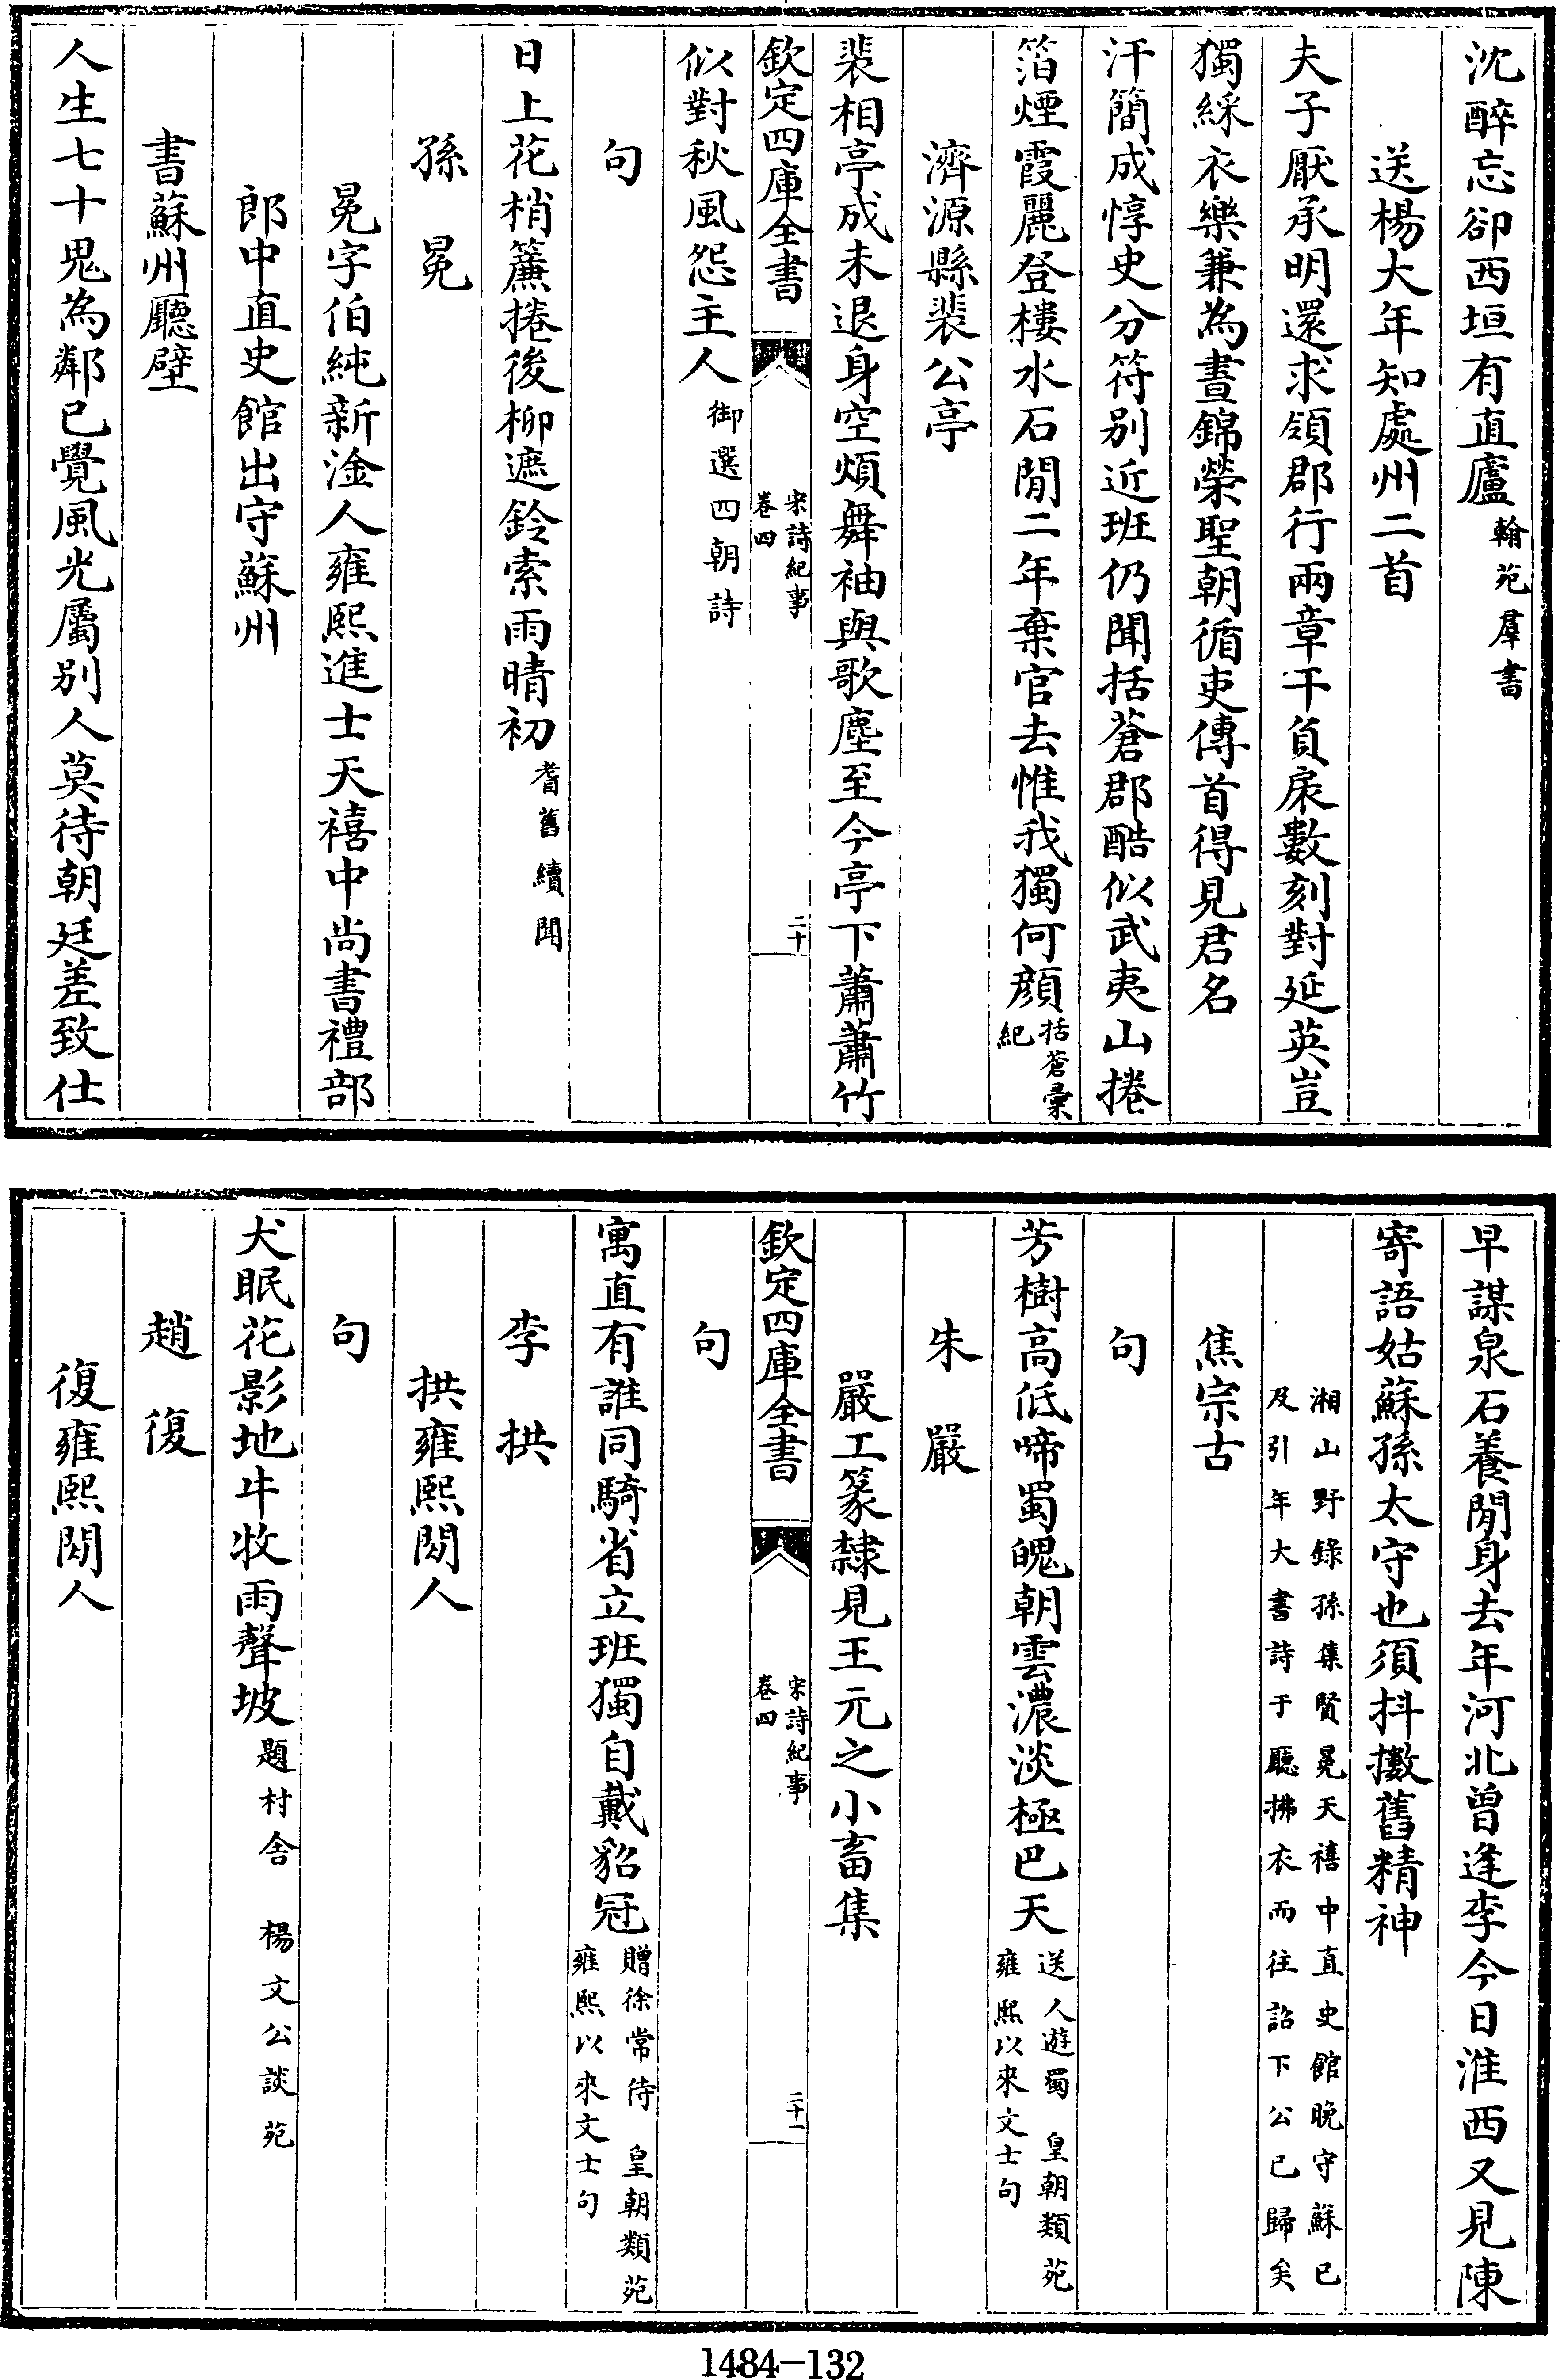 沈醉忘卻西垣有直廬翰苑羣書
送楊大年知處州二首
夫子厭承明還求領郡行兩章干負扆數刻對延英豈
獨綵衣樂兼為晝錦榮聖朝循吏傳首得見君名
汗簡成惇史分符別近班仍聞括蒼郡酷似武夷山捲
箔煙霞麗登樓水石閒二年棄官去惟我獨何顔括蒼彙
紀
濟源縣裴公亭
裴相亭成未退身空煩舞袖與歌塵至今亭下蕭蕭竹
欽定四庫全書
宋詩紀事
卷四
二十
似對秋風怨主人御選四朝詩
句
日上花梢簾捲後柳遮鈴索雨晴初耆舊續聞
孫冕
冕字伯純新淦人雍熙進士天禧中尚書禮部
郎中直史館出守蘇州
書蘇州廳壁
人生七十鬼為鄰已覺風光屬別人莫待朝廷差致仕
早謀泉石養閒身去年河北曾逢李今日淮西又見陳
寄語姑蘇孫太守也須抖擻舊精神
湘山野錄孫集賢冕天禧中直史館晚守蘇已
及引年大書詩于廳拂衣而往詔下公已歸矣
焦宗古
句
芳樹高低啼蜀魄朝雲濃淡極巴天送人遊蜀 皇朝類苑
雍熙以來文士句
朱嚴
嚴工篆隸見王元之小畜集
欽定四庫全書
宋詩紀事
卷四
二十一
句
寓直有誰同騎省立班獨自戴貂冠贈徐常侍 皇朝類苑
雍熙以來文士句
李拱
拱雍熙閒人
句
犬眠花影地牛牧雨聲坡題村舍 楊文公談苑
趙復
復雍熙閒人
1484-132